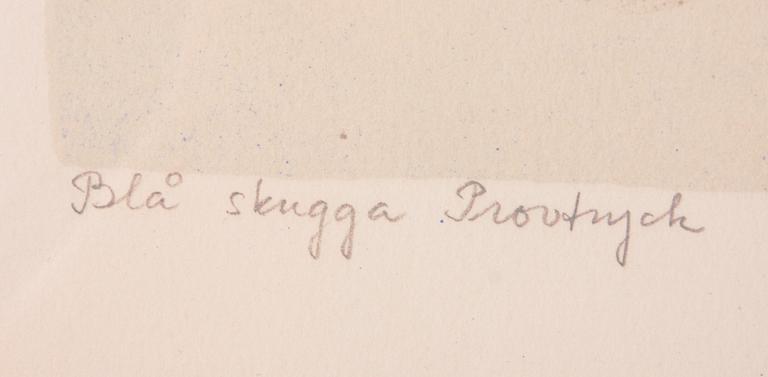 Blå skugga Provtryck